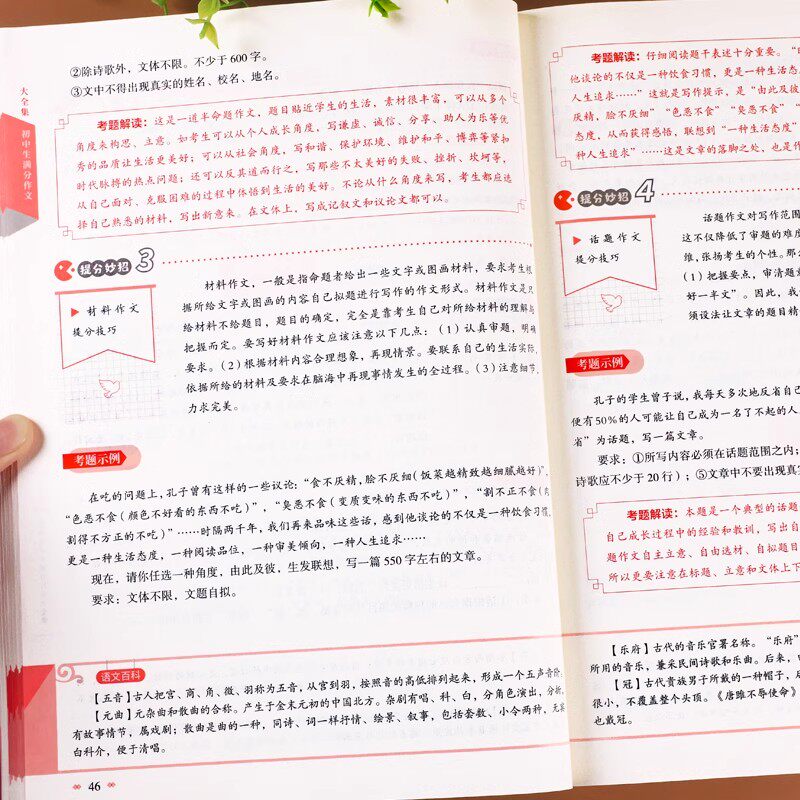 ②除诗歌外，文体不限。不少于 600 字。
③文中不得出现真实的姓名、校名、地名。
大全集
初中生满分作文
考题解读：这是一道半命题作文，题目贴近学生的生活，素材很丰富，可以从多个
角度来构思、立意。如考生可以从个人成长角度，写谦虚、诚信、分享、助人为乐等优
秀的品质让生活更美好；可以从社会角度，写和谐、保护环境、维护和平、博弈等紧扣
时代脉搏的热点问题；还可以反其道而行之，写那些不太美好的失败、挫折、坎坷等，
从自己面对、克服困难的过程中体悟到生活的美好。不论从什么角度来写，考生都应选
择自己熟悉的材料，写出新意来。在文体上，写成记叙文和议论文都可以。
提分妙招 3
▶ 材料作文
提分技巧
材料作文，一般是指命题者给出一些文字或图画材料，要求考生根
据所给文字或图画的内容自己拟题进行写作的作文形式。材料作文是只
给材料不给题目，题目的确定，完全是靠考生自己对所给材料的理解与
把握而定。要写好材料作文应该注意以下几点：（1）认真审题，明确
要求。（2）根据材料内容合理想象，再现情景。要联系自己的生活实际，
依据所给的材料及要求在脑海中再现事情发生的全过程。（3）注意细节，
力求完美。
考题示例
在吃的问题上，孔子曾有这样的一些议论：“食不厌精，脍不厌细（饭菜越精致越细腻越好）”，
“色恶不食（颜色不好看的东西不吃）”，“臭恶不食（变质变味的东西不吃）”，“割不正不食（肉
割得不方正的不吃）”……时隔两千年，我们再来品味这些话，感到他谈论的不仅是一种饮食习惯，
更是一种生活态度，一种阅读品位，一种审美倾向，一种人生追求……
现在，请你任选一种角度，由此及彼，生发联想，写一篇 550 字左右的文章。
要求：文体不限，文题自拟。
语文百科
【五音】古人把宫、商、角、徵、羽称为五音，从宫到羽，按照音的高低排列起来，形成一个五声音阶。
【元曲】元杂曲和散曲的合称。产生于金末元初的中国北方。杂剧有唱、科、白，分角色演出，分折，
有故事情节，属戏剧；散曲是曲的一种，同诗、词一样抒情、绘景、叙事，包括套数、小令两种，无宾
白科介，便于清唱。
46
考题解读：仔细阅读题干表述十分重要。“
他谈论的不仅是一种饮食习惯，更是一种生活态
人生追求……”这就是写作提示，是“由此及彼
厌精，脍不厌细”“色恶不食”“臭恶不食”
态度，从而获得感悟，联想到“一种生活态度”
种人生追求”……这是文章的落脚之处，也是作
提分妙招 4
▶ 话题作文
提分技巧
话题作文对写作范围
这不仅降低了审题的难度
维，张扬考生的个性。那么
（1）把握要点，审清题意
好一半文”。因此，我
须设法让文章的题目精
考题示例
孔子的学生曾子说，我每天多次地反省自己
便有 50％的人可能让自己成为一名了不起的人
省”为话题，写一篇文章。
要求：①所写内容必须在话题范围之内；
诗歌应不少于 20 行）；⑤文章中不要出现真
考题解读：本题是一个典型的话题
自己成长过程中的经验和教训，写出自
题作文自主立意、自由选材、自拟题目
所以更要注意在标题、立意和文体上下
【乐府】古代的音乐官署名称。“乐府”
所用的音乐，兼采民间诗歌和乐曲。后来，
【冠】古代贵族男子所戴的一种帽子，
很小，不覆盖整个头顶。《唐雎不辱使命》
也戴冠。